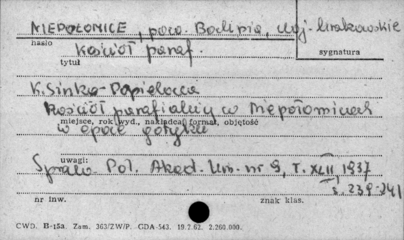 NIEPOŁOMICE, pow. Bochnia, woj. krakowskie
hasło
sygnatura
Kościół paraf.
tytuł
K. Sinko-Popielowa
Kościół parafialny w Niepołomicach
miejsce, rok wyd., nakładca, format, objętość
w epoce gotyku
uwagi:
Spraw. Pol. Akad. Um. nr 9, T. XLII, 1937
s. 239-241
nr inw.
znak klas.
CWD. B-15a. Zam. 363/ZW/P. GDA-543. 19.7.62. 2.260.000.